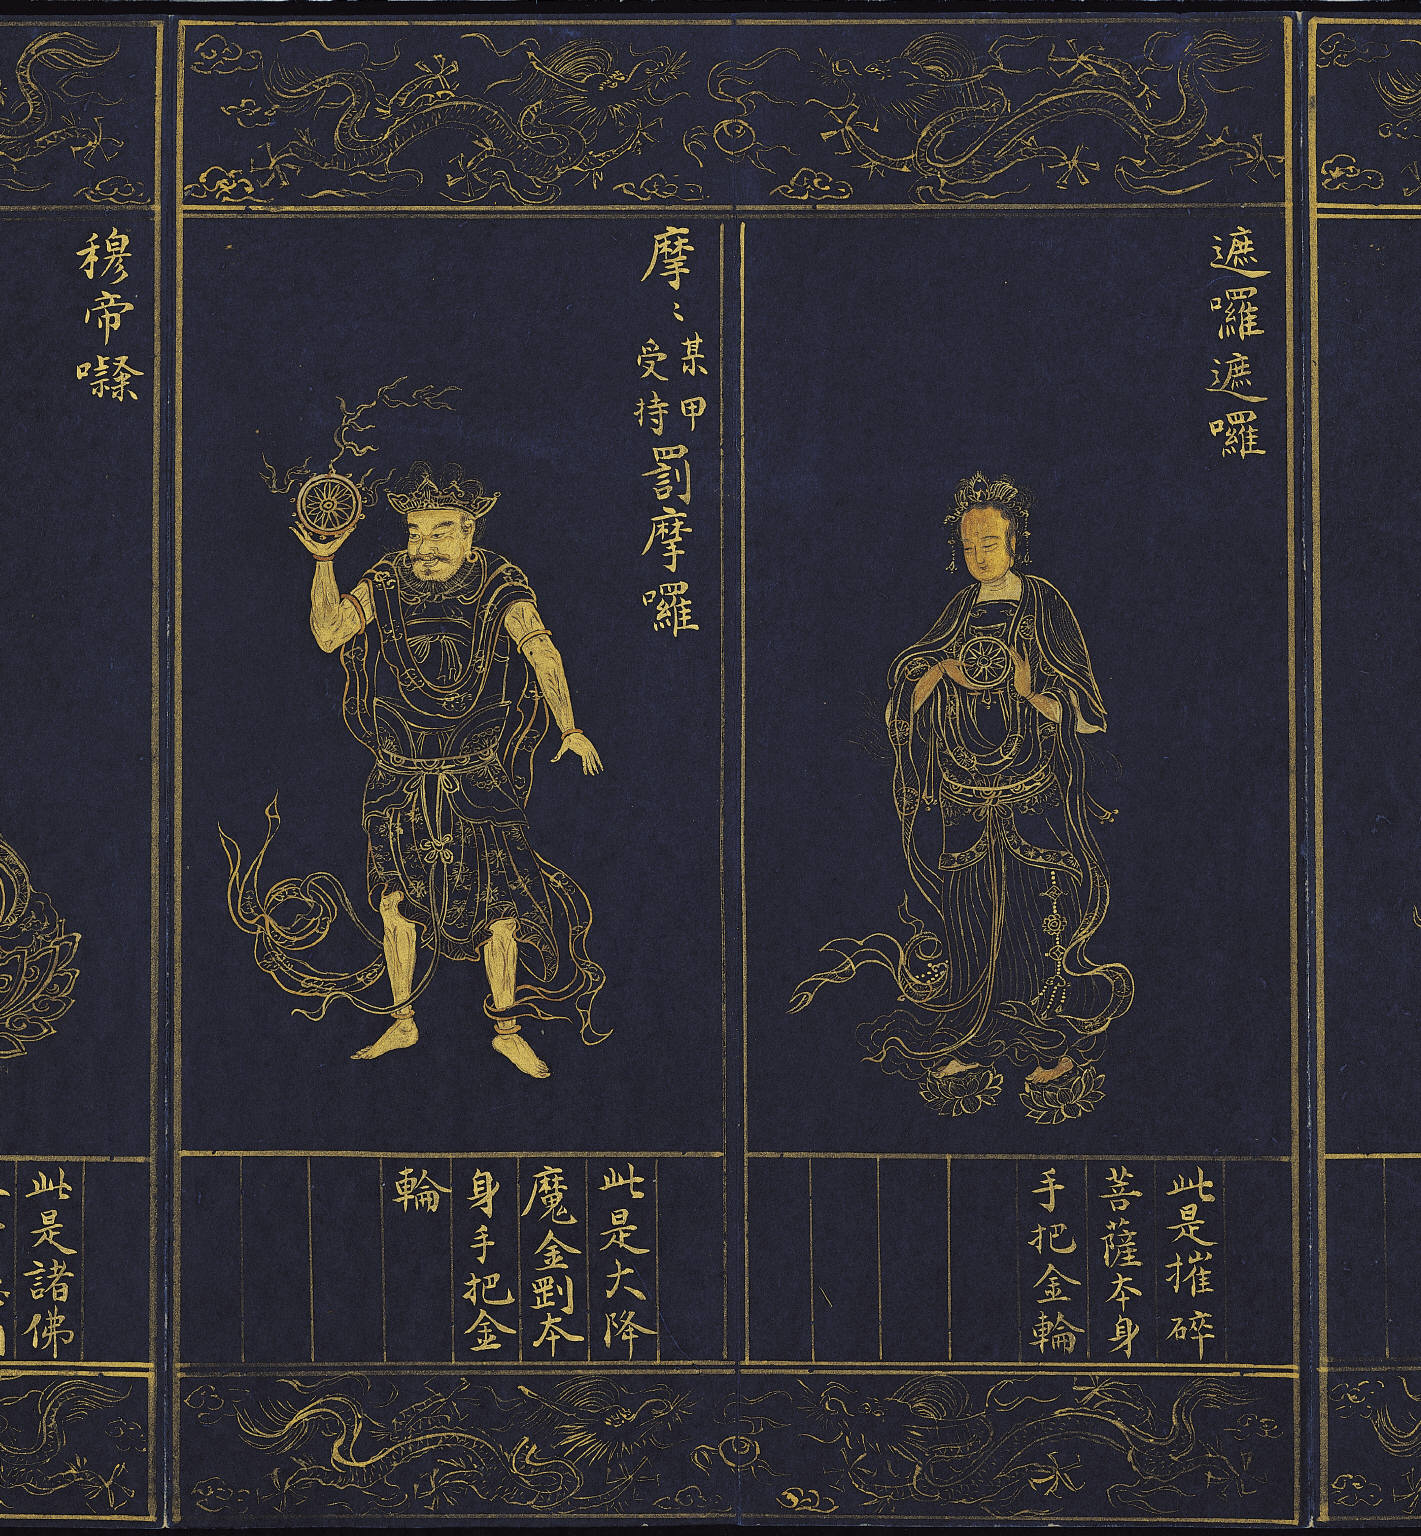 遮囉遮囉
此是摧碎
菩薩本身
手把金輪
摩〻
某甲
受持
罰摩囉
此是大降
魔金剛本
身手把金
輪
穆帝㘑
此是諸佛